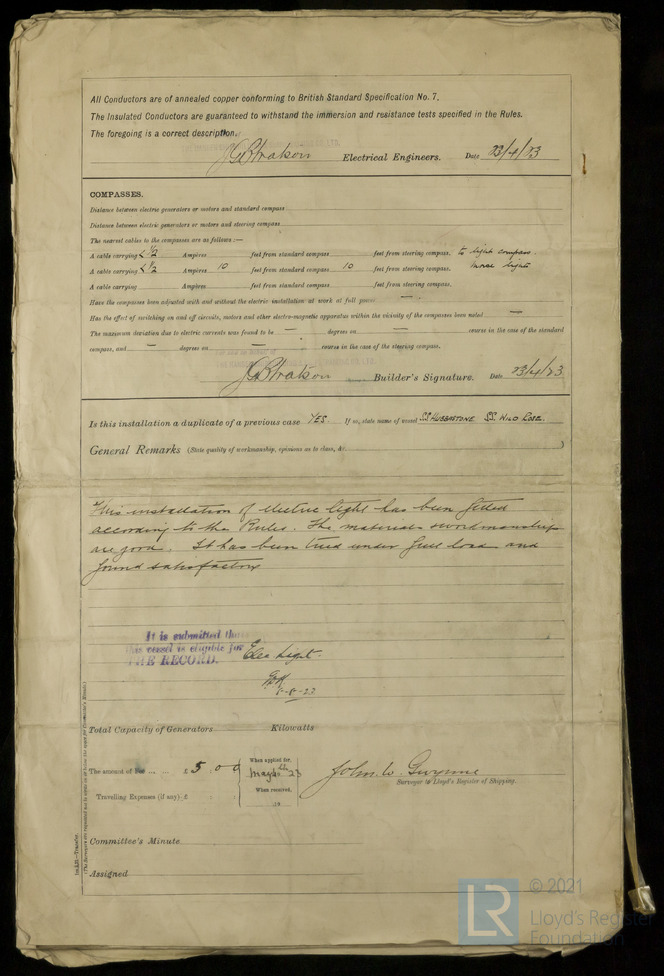 All Conductors are of annealed copper conforming to British Standard Specification No. 7.
The Insulated Conductors are guaranteed to withstand the immersion and resistance tests specified in the Rules.
The foregoing is a correct description.
Electrical Engineers. Date 23/4/23
COMPASSES.
Distance between electric generators or motors and standard compass
Distance between electric generators or motors and steering compass
The nearest cables to the compasses are as follows:—
A cable carrying < 1/2 Ampères feet from standard compass feet from steering compass. to light compass.
A cable carrying < 1/2 Ampères 10 feet from standard compass 10 feet from steering compass. morse lights
A cable carrying Ampères feet from standard compass feet from steering compass.
Have the compasses been adjusted with and without the electric installation at work at full power —
Has the effect of switching on and off circuits, motors and other electro-magnetic apparatus within the vicinity of the compasses been noted —
The maximum deviation due to electric currents was found to be — degrees on — course in the case of the standard
compass, and — degrees on — course in the case of the steering compass.
Builder's Signature. Date 23/4/23
Is this installation a duplicate of a previous case YES. If so, state name of vessel SS HUBBASTONE SS. WILD ROSE.
General Remarks (State quality of workmanship, opinions as to class, &c.
This installation of electric light has been fitted
according to the Rules. The materials & workmanship
are good. It has been tried under full load and
found satisfactory
It is submitted that
this vessel is eligible for
THE RECORD. Elec Light.
1-8-23
Total Capacity of Generators Kilowatts
The amount of Fee ... ... £ 5 . 0 0 When applied for, May 23
John W. Gwynne
Surveyor to Lloyd's Register of Shipping.
Travelling Expenses (if any) £ When received,
19
Committee's Minute
Assigned
Im.4.21—Transfer.
© 2021
LR Lloyd's Register
Foundation